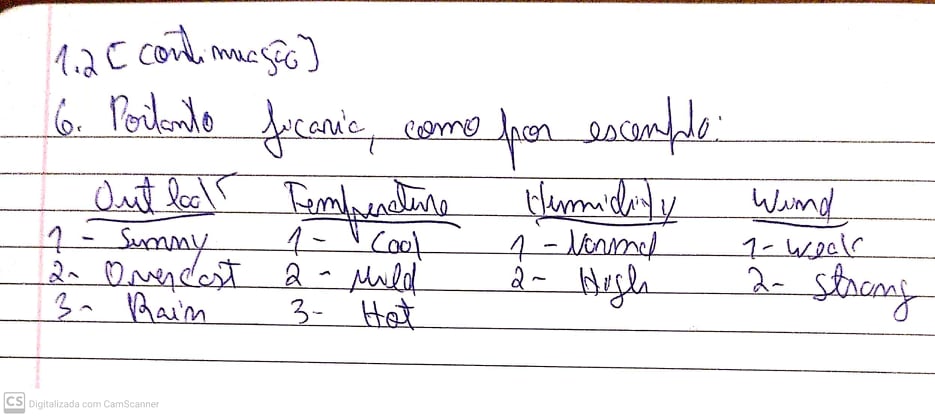 1.2 [continuação]
6. Portanto ficaria, como por exemplo:
Outlook Temperature Humidity Wind
1 - Sunny 1 - Cool 1 - Normal 1- Weak
2- Overcast 2 - Mild 2- High 2- Strong
3- Rain 3- Hot
CS Digitalizada com CamScanner